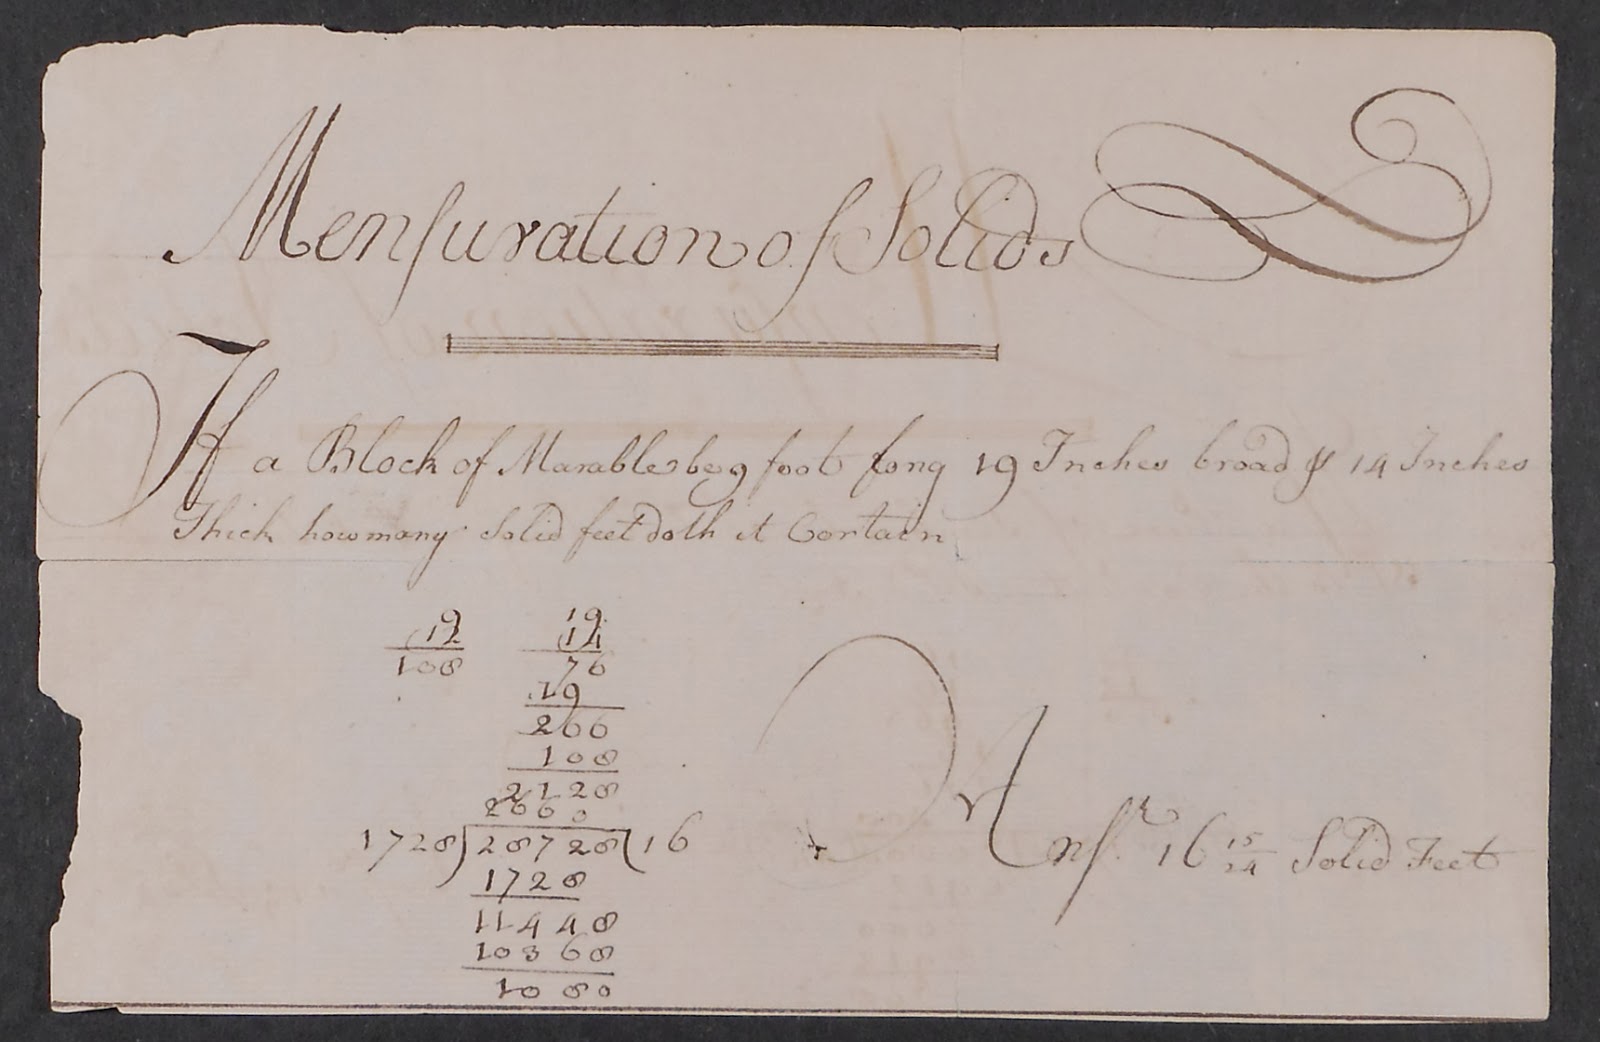 Mensuration of Solids
If a Block of Marable be 9 foot long 19 Inches broad & 14 Inches
Thick how many Solid feet doth it Contain
9 19
12 14
108 76
19
266
108
2128
2660
1728) 28728 (16
1728
11448
10368
1080
Ansr. 16 15/24 Solid Feet